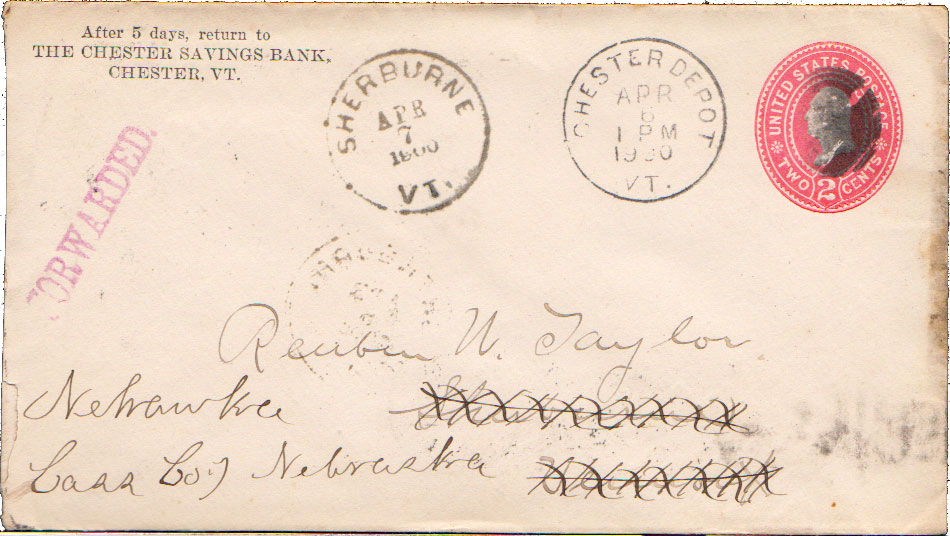 After 5 days, return to
THE CHESTER SAVINGS BANK,
CHESTER, VT.
SHERBURNE
APR
7
1900
VT.
CHESTER DEPOT
APR
6
1 PM
1900
VT.
UNITED STATES POSTAGE
TWO 2 CENTS
FORWARDED.
Reuben W. Taylor
Nehawka
Cass Co., Nebraska